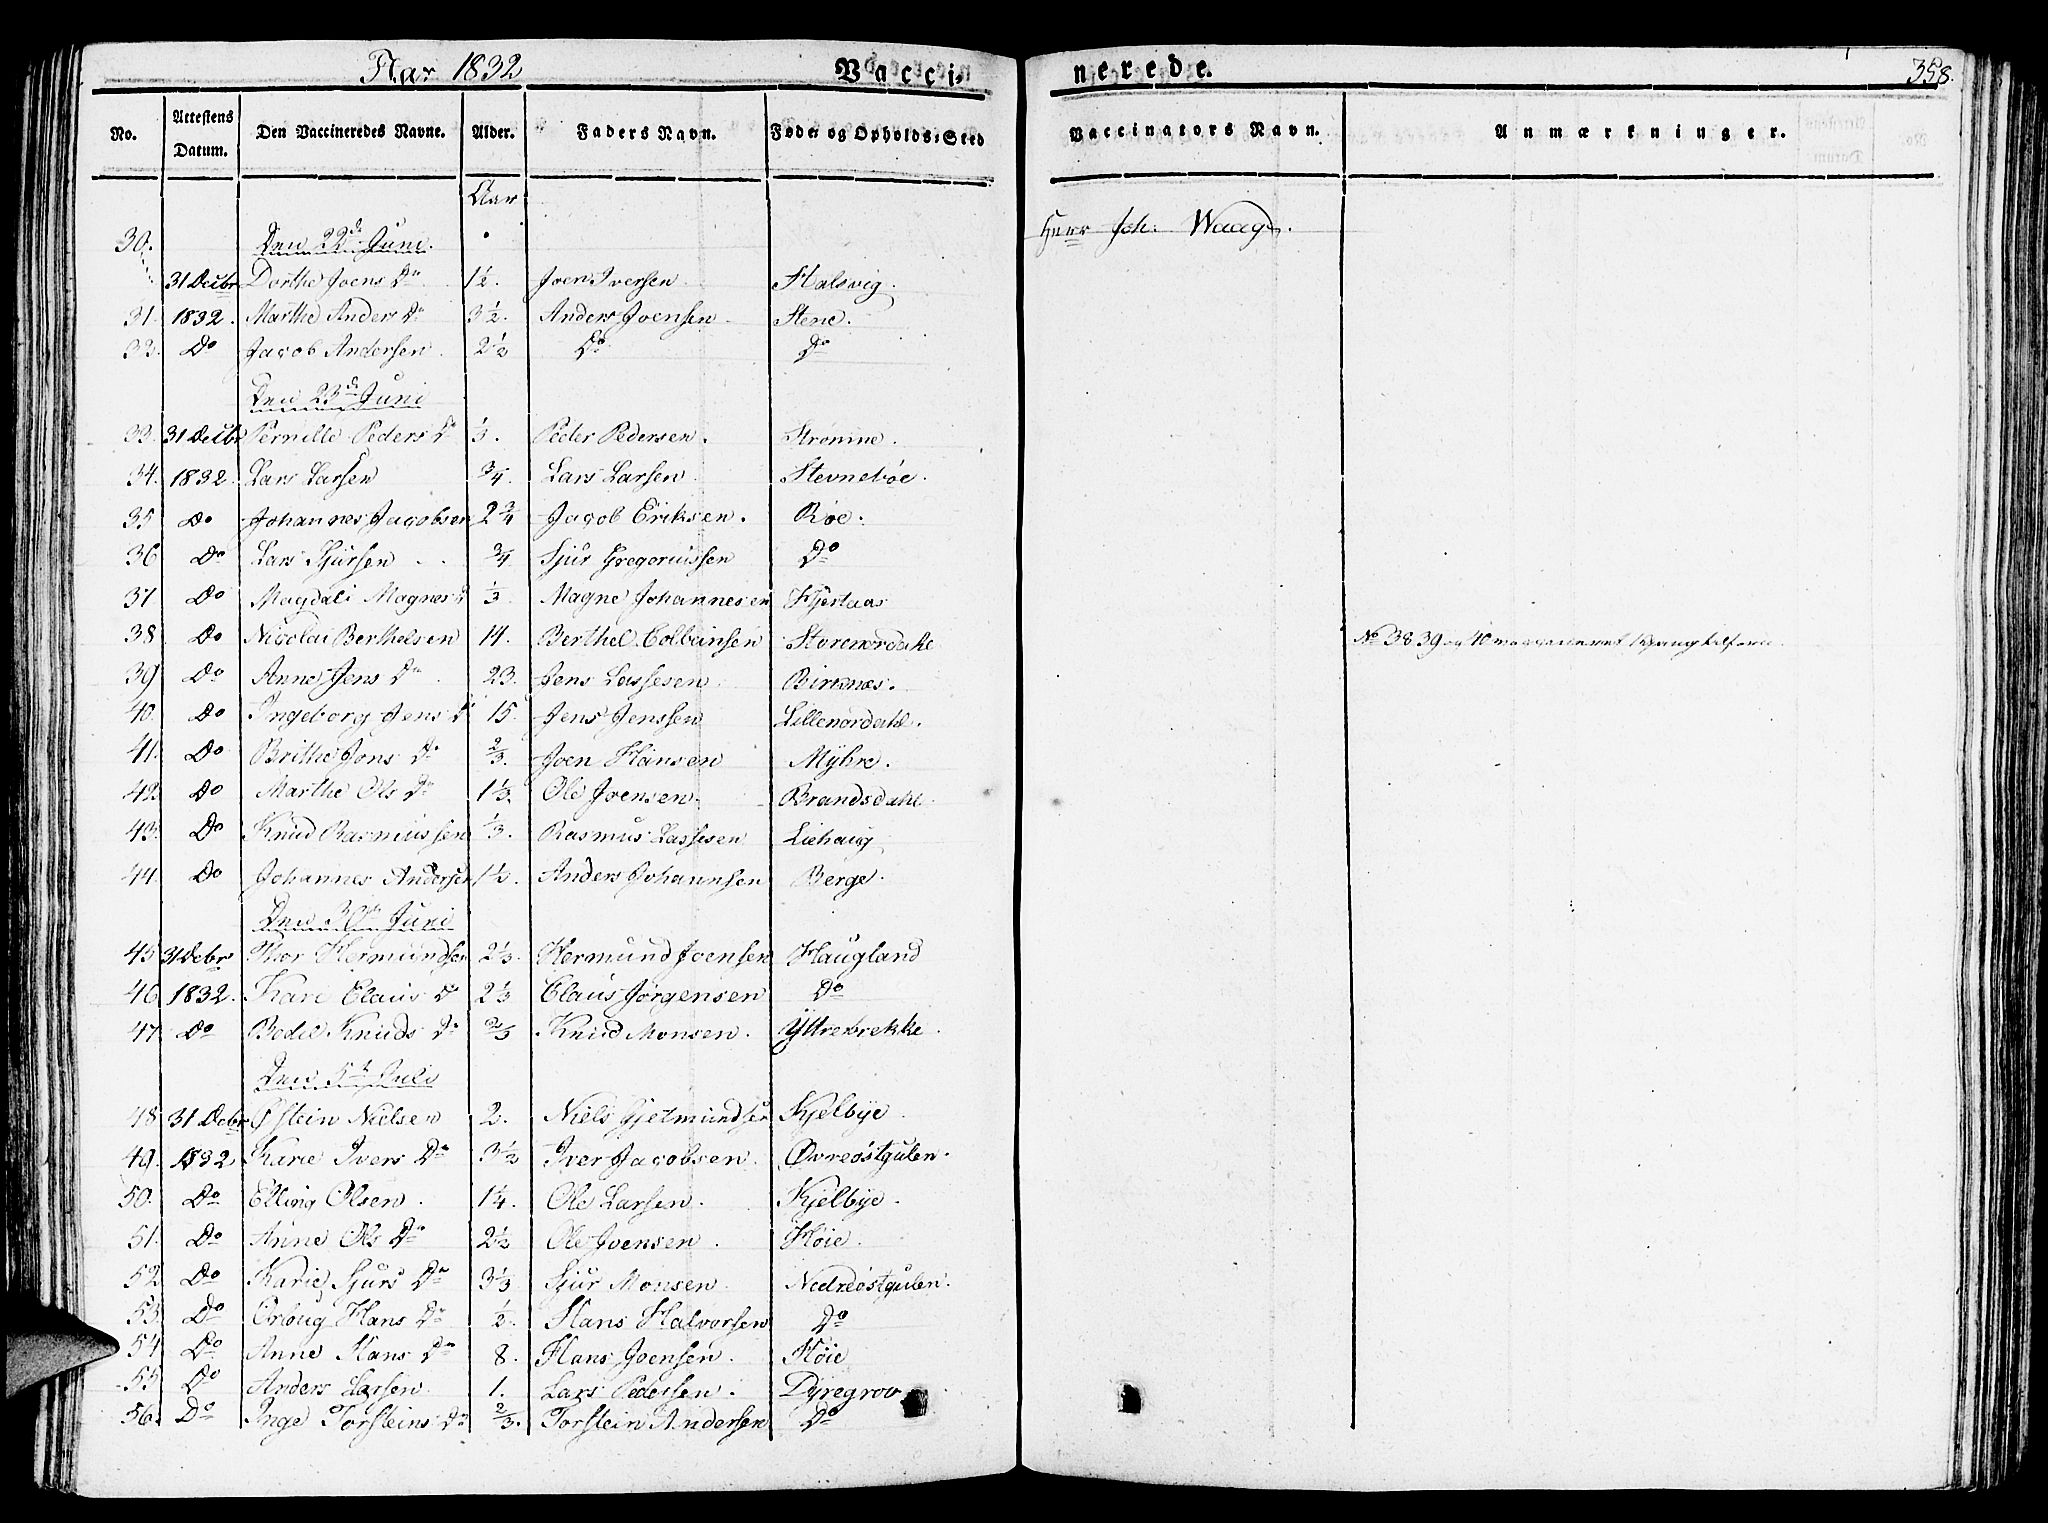 Aar 1832 Vacci- nerede. 358.
No. Attestens Datum. Den Vaccineredes Navne. Alder. Faders Navn. Føde- og Opholds-Sted Vaccinators Navn. Anmærkninger.
Aar
30. Den 22de Juni. Herr Joh: Waage.
31 Decbr Dorthe Joens Dr 1½. Joen Iversen Halsvig.
31. 1832. Marthe Anders Dr 3½. Anders Joensen Stene.
32. Do Jacob Andersen 2½ Do Do
Den 23de Juni
33. 31 Decbr Pernille Peders Dr ⅓. Peder Pedersen. Strømme.
34. 1832. Lars Larsen ¾. Lars Larsen Stevnebøe.
35 Do Johannes Jacobsen 2¾ Jacob Eriksen. Røe.
36 Do Lars Sjursen ¾ Sjur Gregoriussen Do
37 Do Magdeli Magnes Dr ⅓. Magne Johannesen Hjertaas
38. Do Nicolai Berthelsen 14. Berthel Colbeinsen Storenordahl No 38 39 og 40 vaccineret Gang tilforn.
39 Do Anne Jens Dr 23. Jens Lassesen Birknæs.
40. Do Ingeborg Jens Dr 15. Jens Jenssen Lillenordahl.
41. Do Brithe Jons Dr ⅔. Joen Hansen Myhre.
42 Do Marthe Ols Dr 1⅓. Ole Joensen Brandsdahl
43. Do Knud Rasmussen ⅓. Rasmus Lassesen Liehaug
44. Do Johannes Andersen 1½. Anders Johannsen Berge.
Den 30te Juni
45 31 Decbr Thor Hermundsen 2⅓. Hermund Joensen Haugland
46 1832. Kari Claus Dr 2⅓ Claus Jørgensen Do
47. Do Bodel Knuds Dr ⅔ Knud Monsen. Yttrebrekke.
Den 5te Juli
48 31 Decbr Østein Nielsen 2. Niels Gjetmundsen Kjelbye.
49. 1832. Karie Ivers Dr 3½ Iver Jacobsen Øvreøstgulen.
50. Do Elling Olsen. 1¼. Ole Larsen. Kjelbye.
51. Do Anne Ols Dr 2½ Ole Joensen. Høie.
52 Do Karie Sjurs Dr 3⅓ Sjur Monsen. Nedreøstgulen.
53. Do Hans Dr ½. Hans Halvorsen Do
54 Do Anne Hans Dr 8. Hans Joensen. Høie
55 Do Anders Larsen 1. Lars Pedersen. Dyregrov
56. Do Inge Torsteins Dr ⅔. Torstein Andersen Do